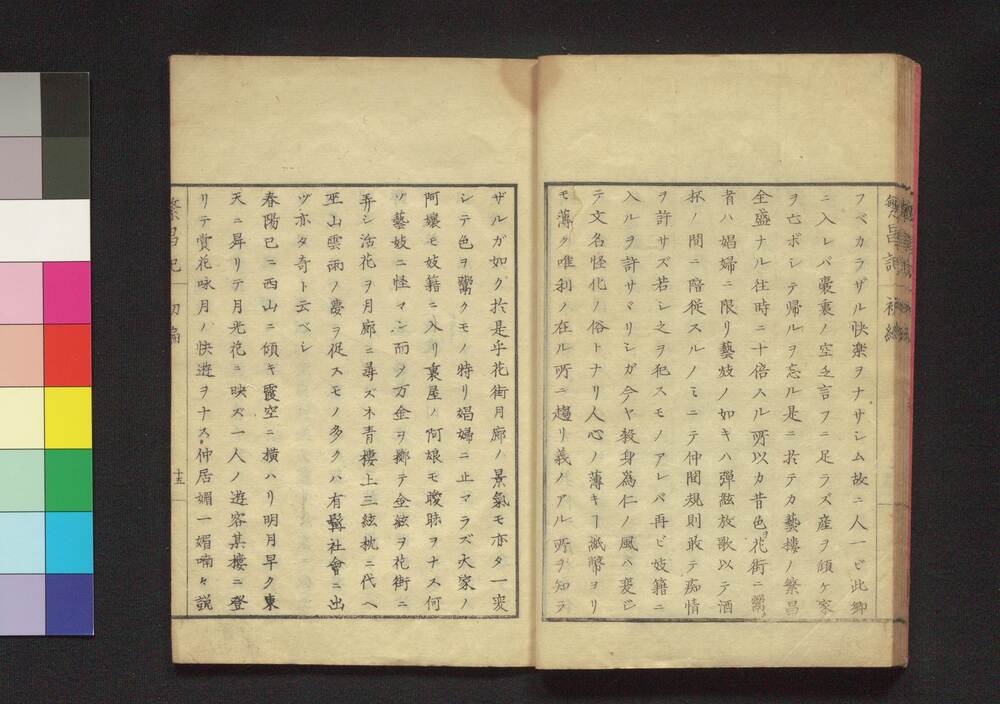 フベカラザル快楽ヲナサシム故ニ人一ビ此郷
ニ入レバ嚢裏ノ空乏言フニ足ラズ産ヲ傾ケ家
ヲ亡ボシテ帰ルヲ忘ル是ニ於テカ藝樓ノ繁昌
全盛ナル往時ニ十倍スル所以カ昔色ヲ花街ニ鬻ク
者ハ娼婦ニ限リ藝妓ノ如キハ弾絃放歌以テ酒
杯ノ間ニ陪従スルノミニテ仲間規則敢テ痴情
ヲ許サズ若シ之ヲ犯スモノアレバ再ビ妓籍ニ
入ルヲ許サヾリシガ今ヤ殺身為仁ノ風ハ変ジ
テ文名怪化ノ俗トナリ人心ノ薄キヿ紙幣ヨリ
モ薄ク唯利ノ在ル所ニ趨リ義ノアル所ヲ知ラ
ザルガ如ク於是乎花街月廊ノ景氣モ亦タ一変
シテ色ヲ鬻クモノ特リ娼婦ニ止マラズ大家ノ
阿嬢モ妓籍ニ入リ裏屋ノ阿娘モ曖昧ヲナス何
ソ藝妓ニ怪マン而メ万金ヲ擲テ金絃ヲ花街ニ
弄シ活花ヲ月廊ニ尋ズネ青樓上三絃枕ニ代ヘ
巫山雲雨ノ夢ヲ促スモノ多クハ有髯社會ニ出
ヅ亦タ奇ト云ベシ
春陽已ニ西山ニ傾キ霞空ニ横ハリ明月早ク東
天ニ昇リテ月光花ニ映ズ一人ノ遊客某樓ニ登
リテ賞花咏月ノ快遊ヲナス仲居媚一媚喃々説
繁昌記 初編
十五